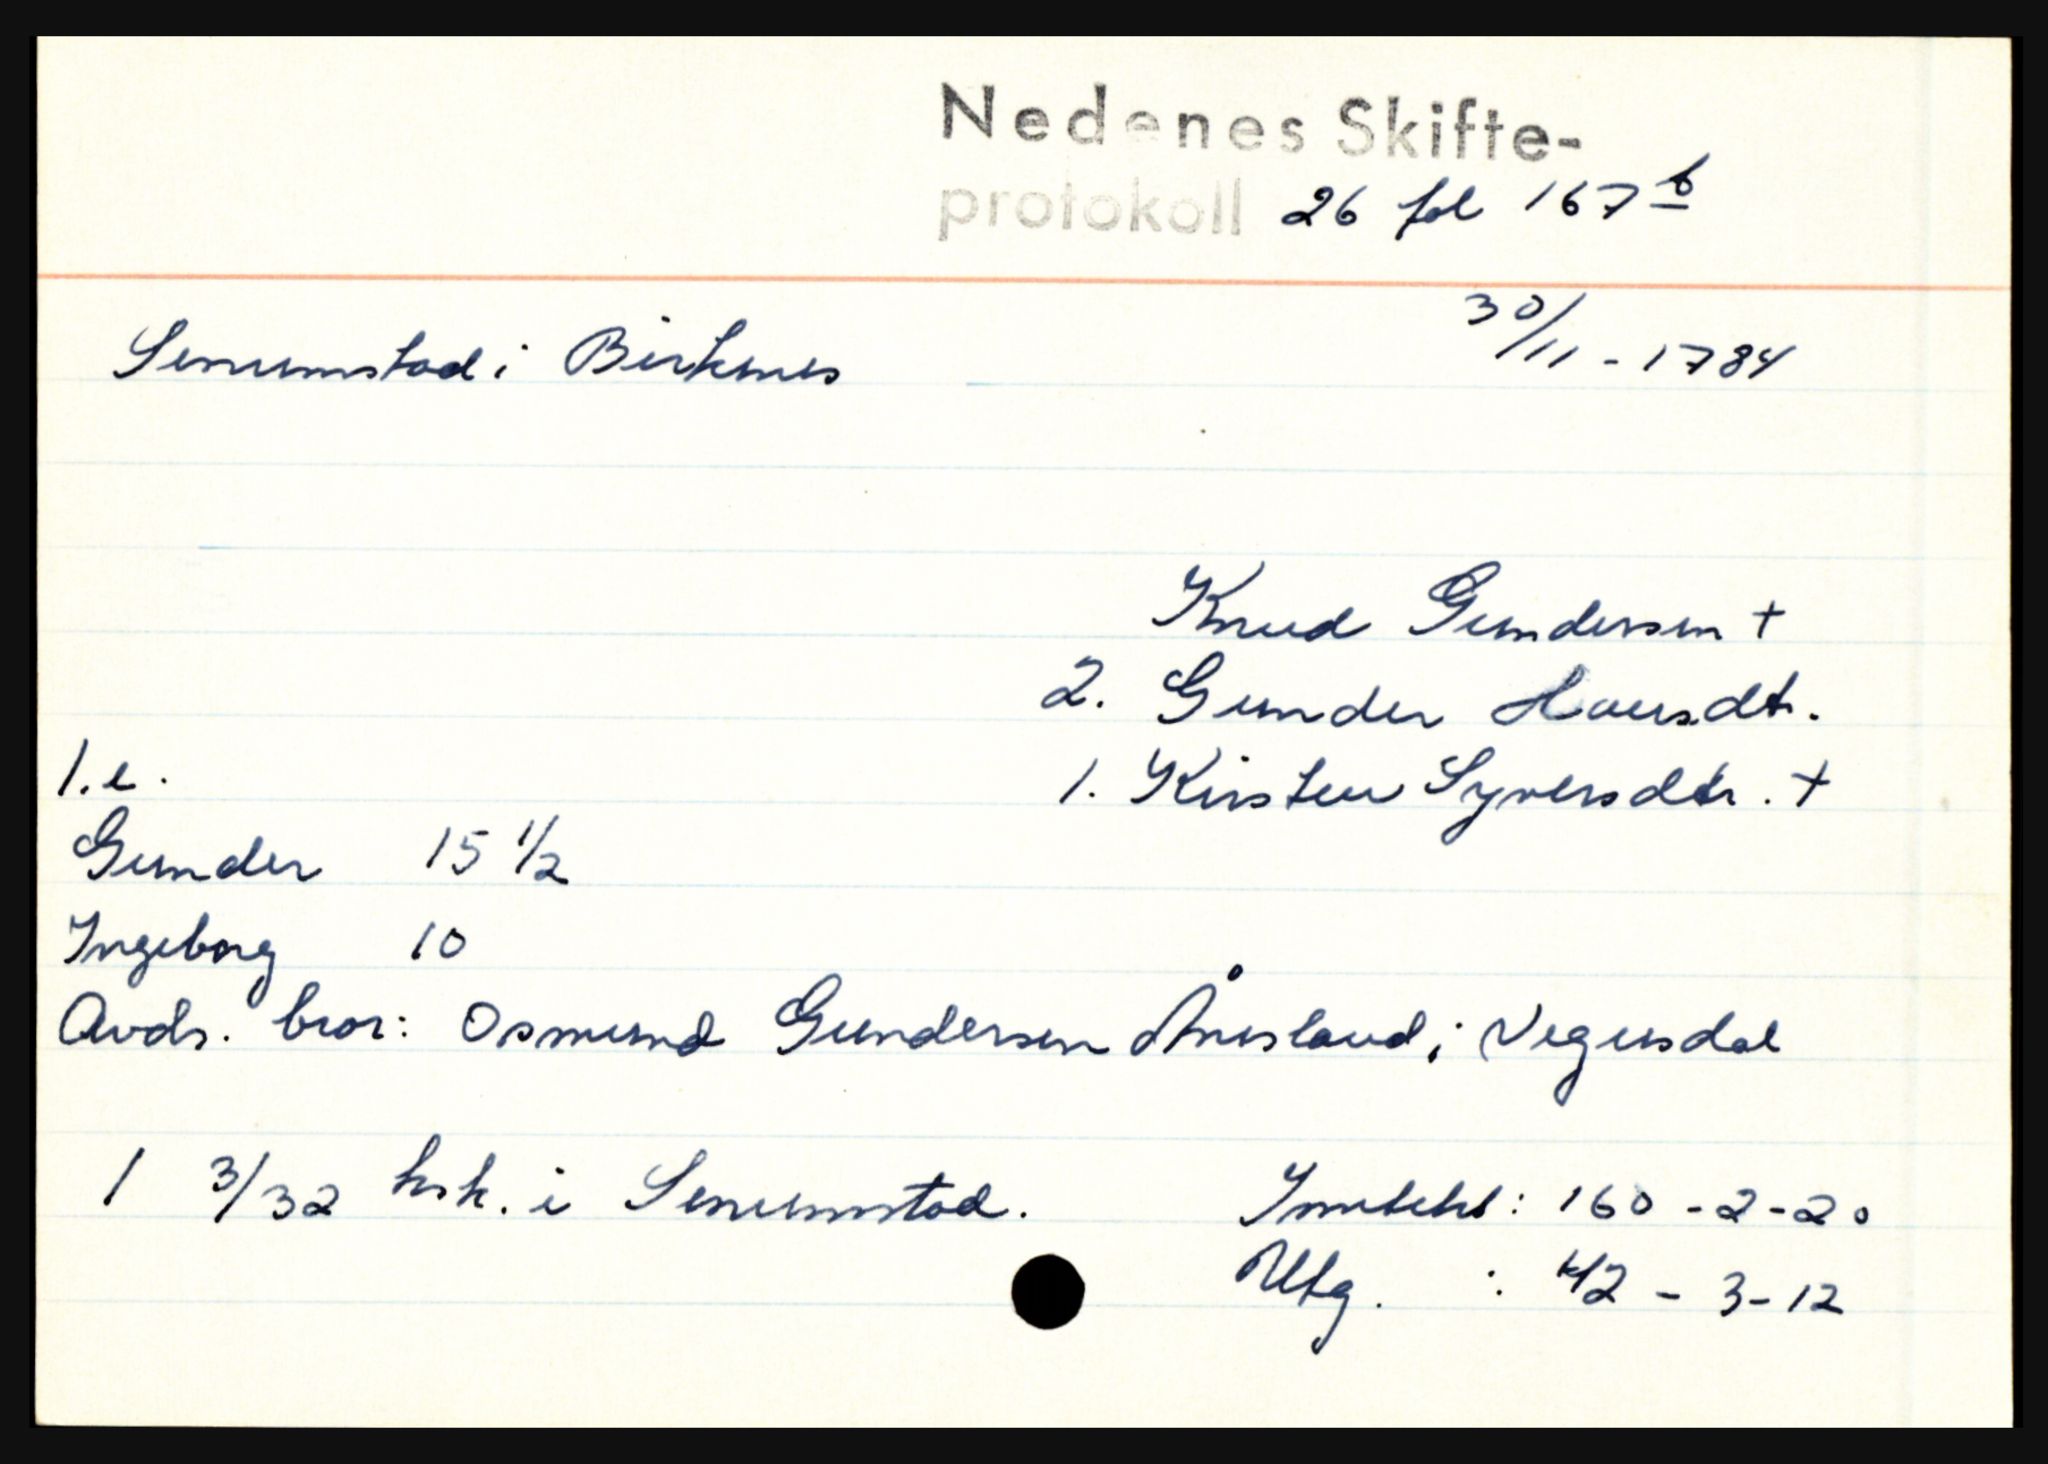 Nedenes Skifte-
protokoll 26 fol 167 b
30/11 - 1784
Senumstad i Birkenes
Knud Gundersen +
2. Gunder Haversdtr.
1. e.
1. Kirsten Syversdtr. +
Gunder 15 1/2
Ingeborg 10
Avds. bror: Osmund Gundersen Ånesland i Vegusdal
1 3/32 hsk. i Senumstad.
Inntekt: 160 - 2 - 20
Utg. : 42 - 3 - 12